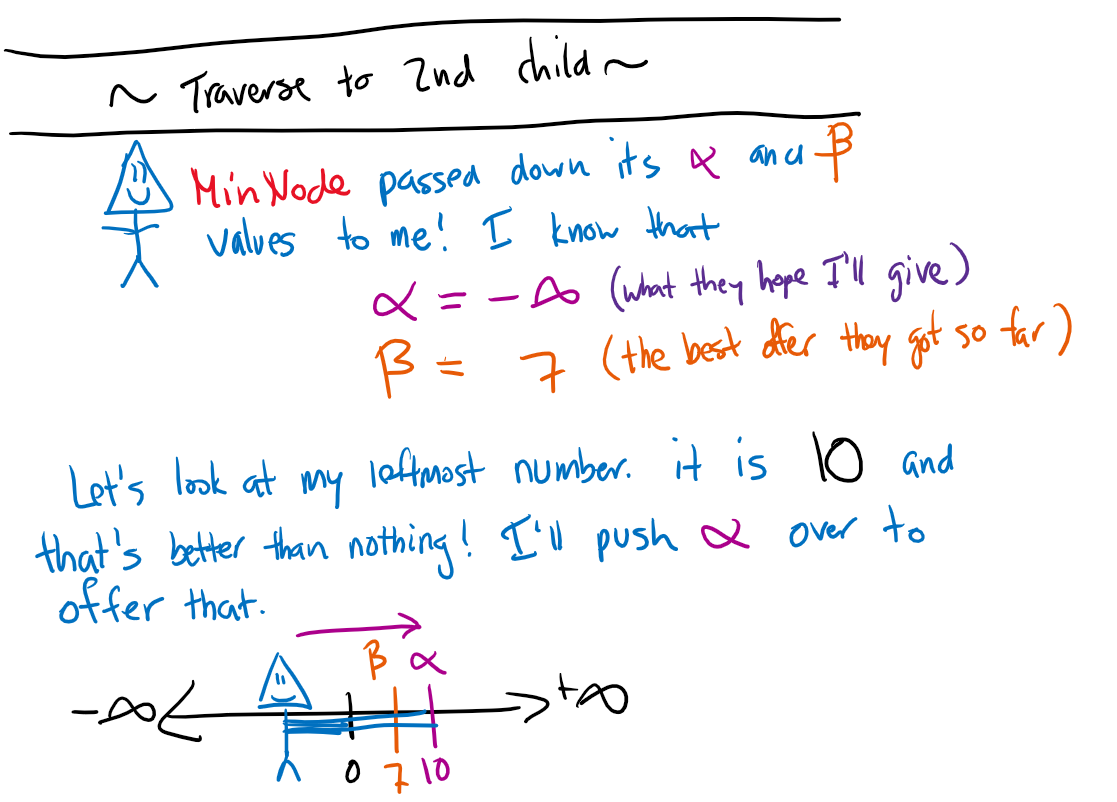 ~ Traverse to 2nd child ~
MinNode passed down its α and β
values to me! I know that
α = -∞ (what they hope I'll give)
β = 7 (the best offer they got so far)
Let's look at my leftmost number. it is 10 and
that's better than nothing! I'll push α over to
offer that.
β α
-∞ +∞
0 7 10